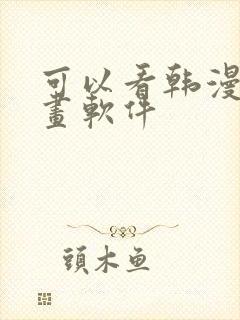 可以看韩漫
畫軟件
頭木鱼